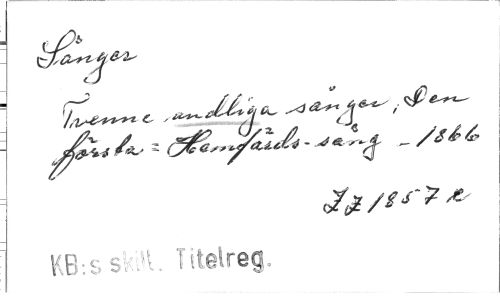 Sånger
Tvenne andliga sånger, Den
första = Hemfärds-sång - 1866
J J 1857 R
KB:s skill. Titelreg.